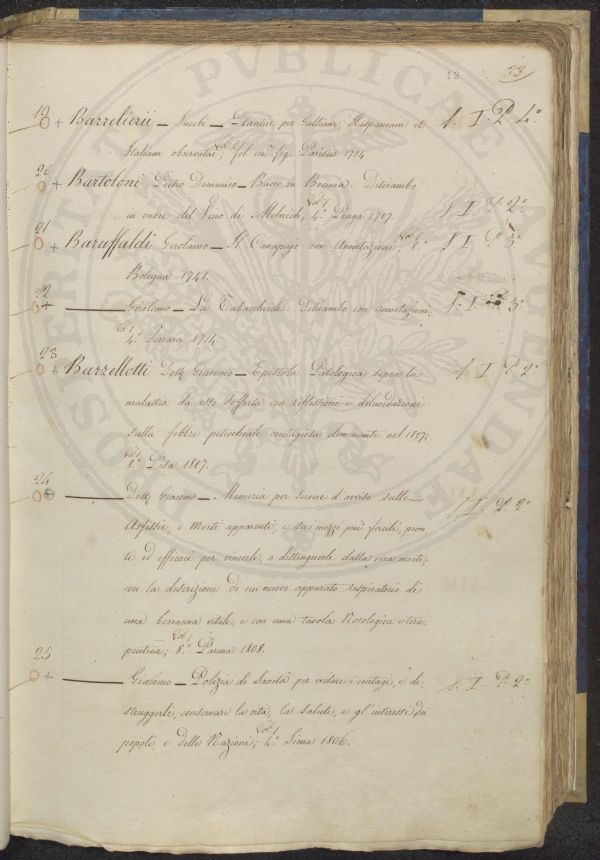 PVBLICAE
POSTERITATI
AVGENDAE
18 33
19
+ Barrelierii _ Jacobi _ Plantae per Galliam, Hispaniam et S. I. P. 4.º
Italiam observatae; Vol. 1 fol. cū fig. Parisiis 1714
20
+ Bartoloni Pietro Domenico _ Bacco in Boemia: Ditirambo
in onore del Vino di Melnich; Vol. 1 4.º Praga 1717. S. I. P. 2º
21
+ Baruffaldi Girolamo _ Il Canapajo con Annotazioni; Vol. 1 8.º S. I. P. 3º
Bologna 1741.
22
+ ——— Girolamo _ La Tabaccheide: Ditirambo con annotazioni; S. I. P. 3º
Vol. 1 4.º Ferrara 1714.
23
+ Barzellotti Dott. Giacomo _ Epistola Patologica sopra la S. I. P. 2º
malattia da esso sofferta con riflessioni e dilucidazioni
sulla febbre petecchiale contagiosa dominante nel 1817;
Vol. 1 8.º Pisa 1817.
24
+ ——— Dott. Giacomo _ Memoria per servire d'avviso sulle S. I. P. 2º
Asfissie, o morti apparenti, e su i mezzi più facili, pron
ti ed efficaci per vincerle, o distinguerle dalla vera morte,
con la descrizione di un nuovo apparato respiratorio di
una borraccia vitale, e con una tavola Nosologica e tera
peutica; Vol. 1 8.º Parma 1808.
25
+ ——— Giacomo _ Polizia di Sanità per evitare i contagi, e di S. I. P. 2º
struggerli, conservare la vita, la salute, e gl'interessi dei
popoli, e delle Nazioni; Vol. 1 4.º Siena 1806.